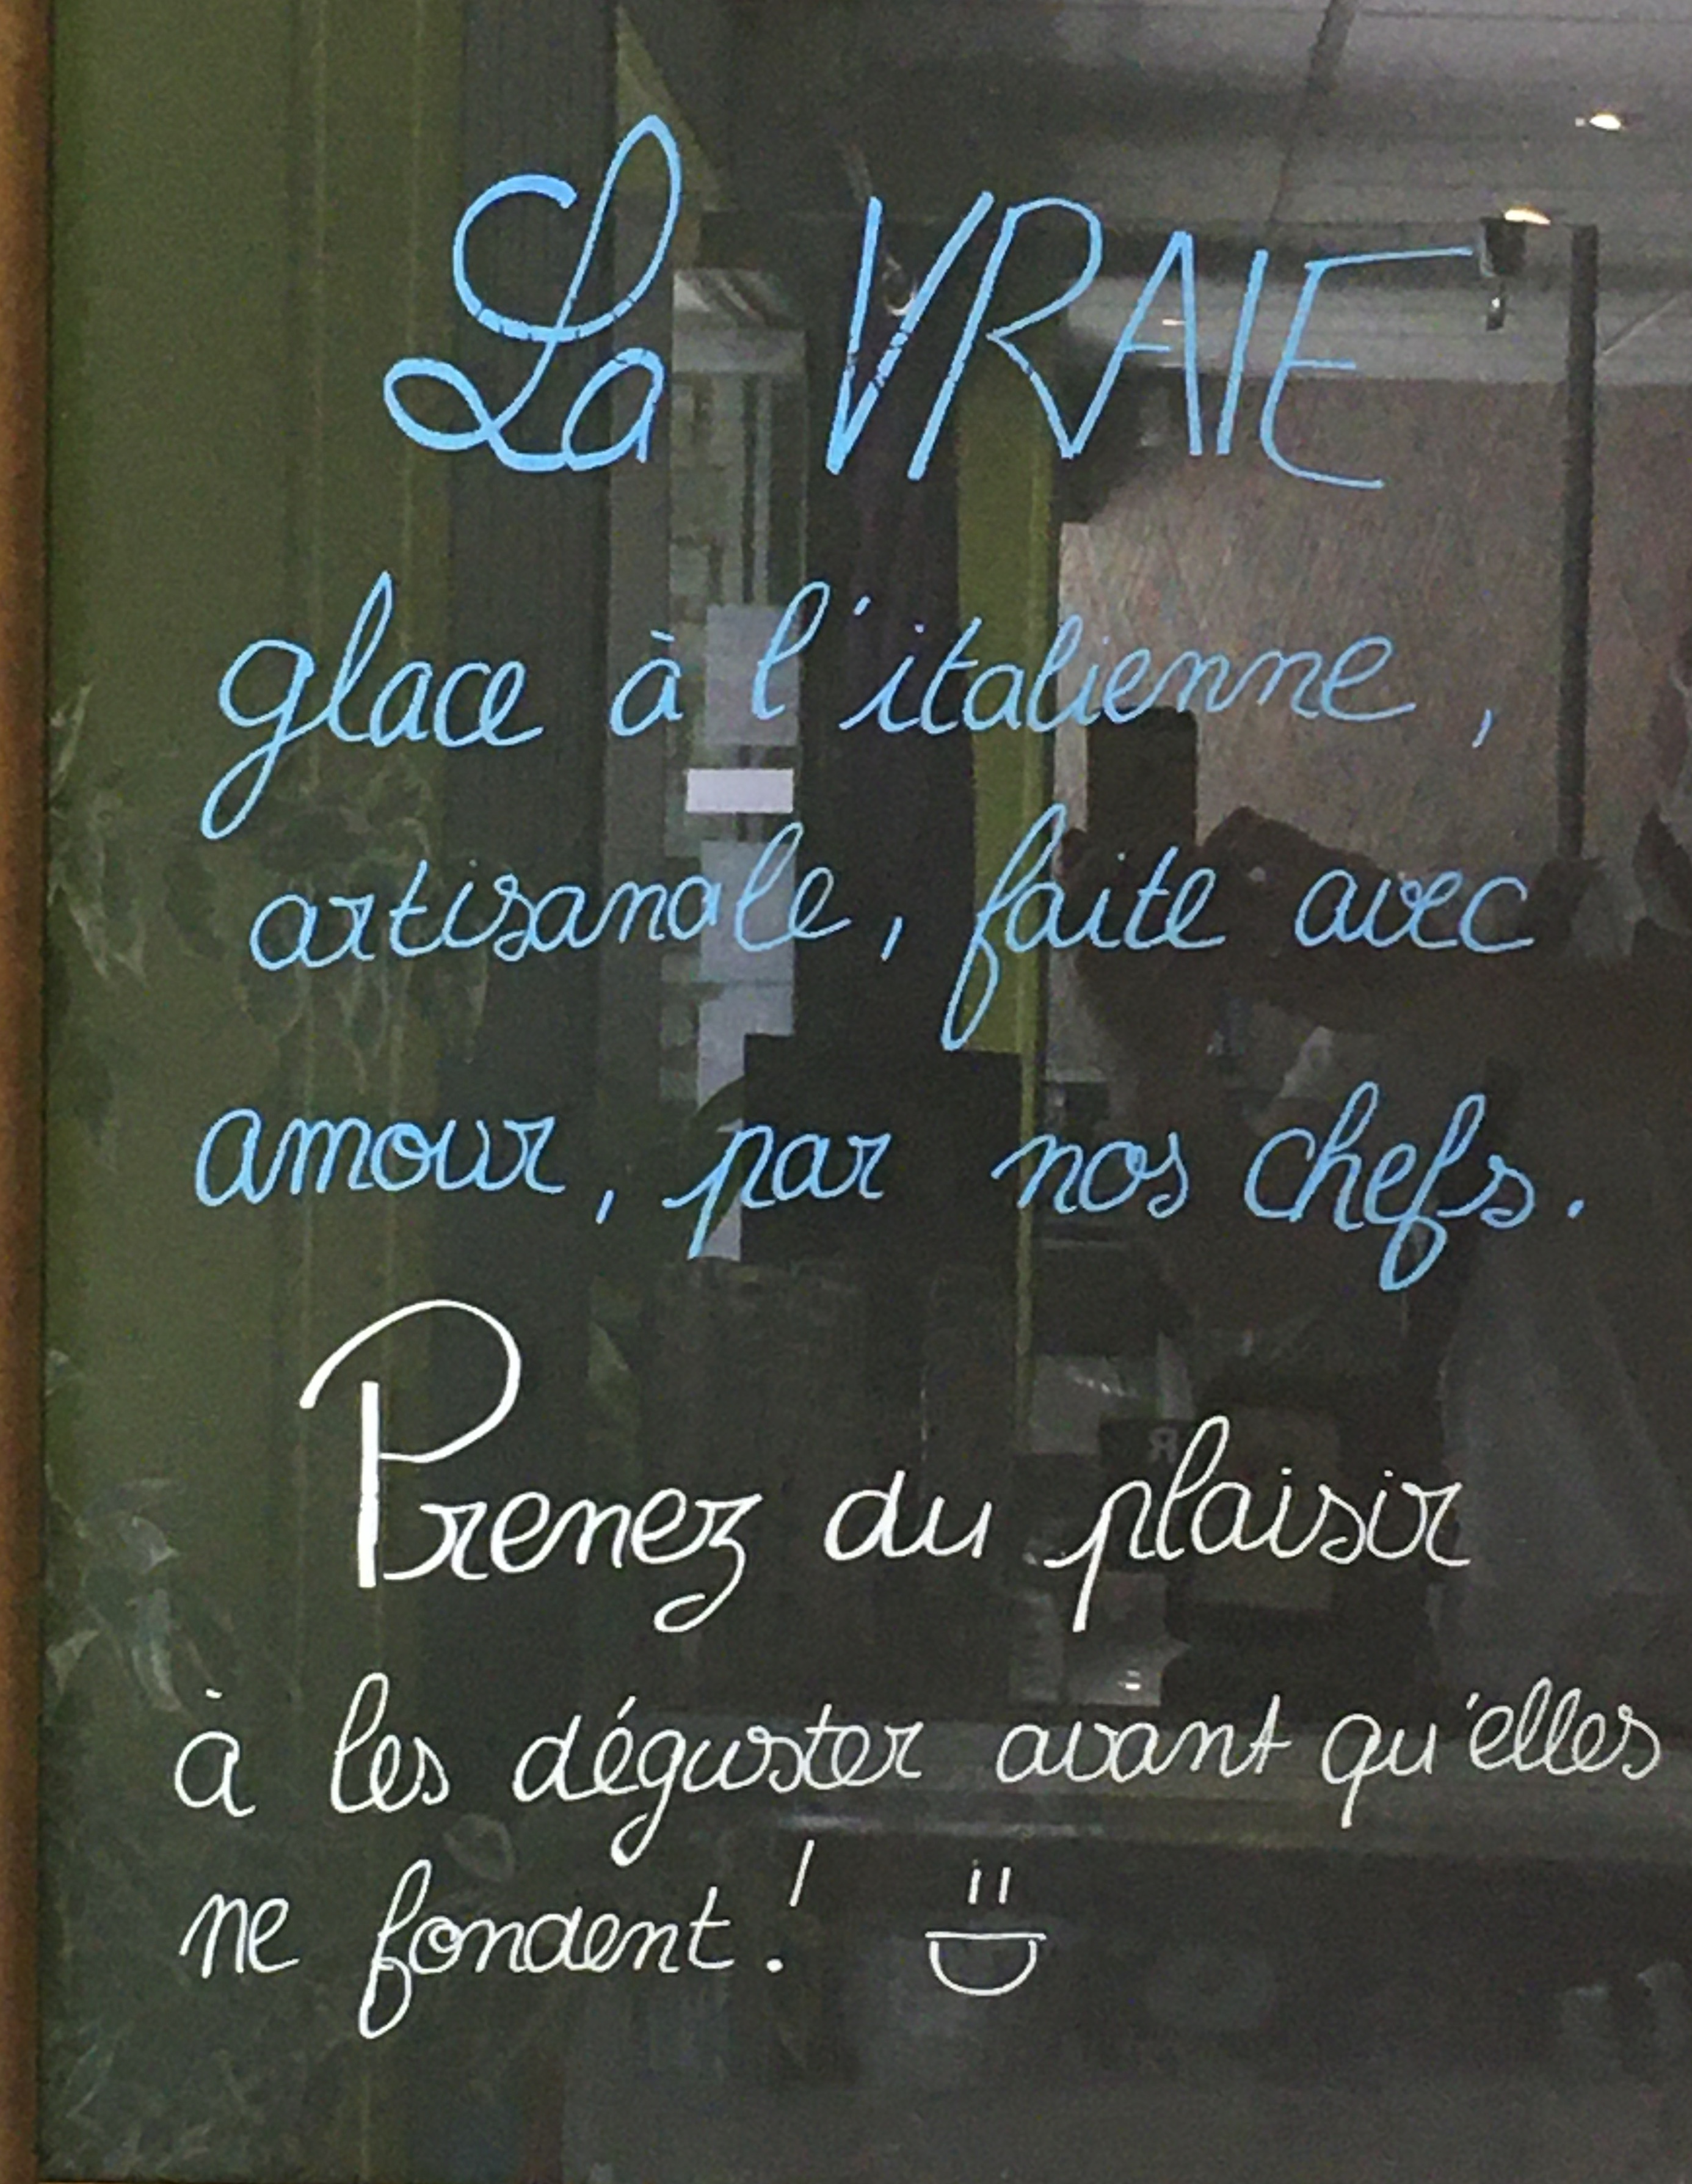 La VRAIE
glace à l'italienne,
artisanale, faite avec
amour, par nos chefs.
Prenez du plaisir
à les déguster avant qu'elles
ne fondent !